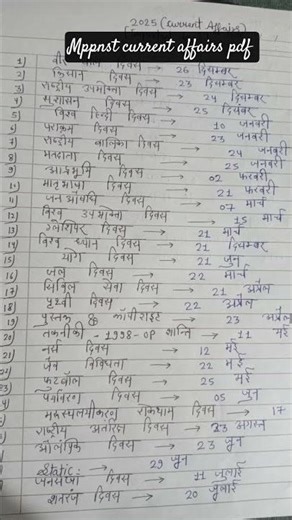 2025 (Current Affairs)
Mppnst current affairs pdf
1) वीर बाल दिवस → 26 दिसम्बर
2) किसान दिवस → 23 दिसम्बर
3) राष्ट्रीय उपभोक्ता दिवस → 24 दिसम्बर
4) सुशासन दिवस → 25 दिसंबर
5) विश्व हिन्दी दिवस → 10 जनवरी
6) पराक्रम दिवस → 23 जनवरी
7) राष्ट्रीय बालिका दिवस → 24 जनवरी
8) मतदाता दिवस → 25 जनवरी
9) आर्द्रभूमि दिवस → 02 फरवरी
10) मातृभाषा दिवस → 21 फरवरी
11) जन औषधि दिवस → 07 मार्च
12) विश्व उपभोक्ता दिवस → 15 मार्च
13) ग्लेशियर दिवस → 21 मार्च
14) विश्व ध्यान दिवस → 21 दिसम्बर
15) योग दिवस → 21 जून
16) जल दिवस → 22 मार्च
17) सिविल सेवा दिवस → 21 अप्रैल
18) पृथ्वी दिवस → 22 अप्रैल
19) पुस्तक & कॉपीराइट → 23 अप्रैल
20) तकनीकी - 1998 - OP शक्ति → 11 मई
21) नर्स दिवस → 12 मई
जैव विविधता → 22 मई
फुटबॉल दिवस → 25 मई
पर्यावरण दिवस → 05 जून
मरुस्थलीकरण रोकथाम दिवस → 17
राष्ट्रीय अंतरिक्ष दिवस → 23 अगस्त
ओलंपिक दिवस → 23 जून
29 जून
जनसंख्या दिवस → 11 जुलाई
शतरंज दिवस → 20 जुलाई